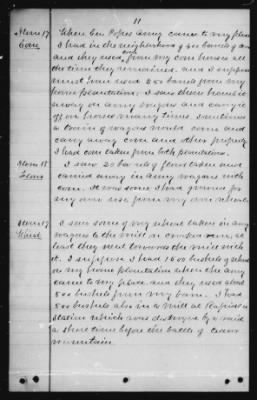 11
Item 17 When Gen Popes army came to my place
Corn I had in the neighborhood of 400 barrels of corn
and they used corn from my corn houses all
the time they remained. and I suppose
must have used 250 barrels from my
home plantation. I saw them haul it
away in army wagons and carry it
off on horses many times. Sometimes
a train of wagons would come and
carry away corn and other property
I had corn taken from both plantations.
Item 18 I saw 20 barrels of flour taken and
Flour carried away in army wagons with
corn. It was some I had ground for
my own use from my own wheat
Item 19 I saw some of my wheat taken in army
Wheat wagons to the mill in at
least they went towards the mill with
it. I suppose I had 1500 bushels of wheat
on my home plantation when the army
came to my place and they used about
500 bushels from my barn. I had
500 bushels also in a mill at Rapidan
Station which was destroyed by a raid
a short time before the battle of Cedar
mountain.